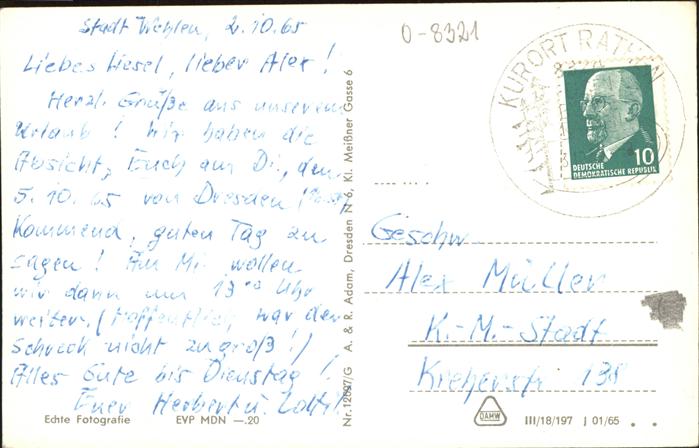 Stadt Wehlen, 2.10.65
Liebes Liesel, lieber Alex!
Herzl. Grüße aus unserem
Urlaub! Wir haben die
Absicht, Euch am Di., den
5.10.65 von Dresden
kommend, guten Tag zu
sagen! Am Mi. wollen
wir dann um 13⁰⁰ Uhr
weiter. (Hoffentlich war der
Schreck nicht zu groß!)
Alles Gute bis Dienstag!
Euer Herbert u.
Echte Fotografie EVP MDN —.20
Nr. 12697/G A. & R. Adam, Dresden N 6, Kl. Meißner Gasse 6
0-8321
KURORT RATHEN
10
DEUTSCHE
DEMOKRATISCHE REPUBLIK
Geschw.
Alex Müller
K.-M.-Stadt
Kreherstr. 138
DAMW
III/18/197 J 01/65